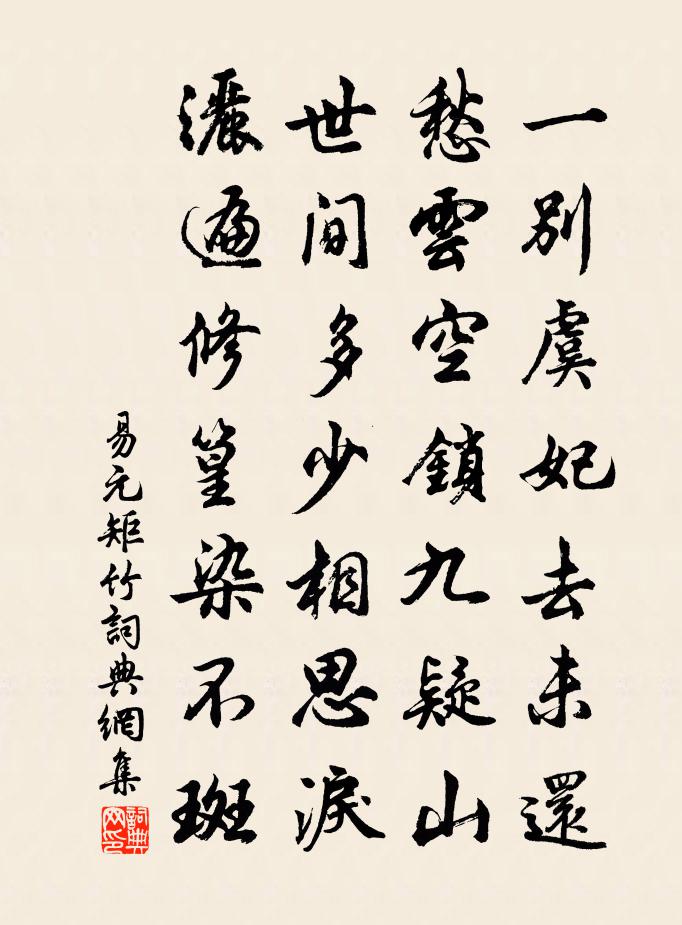 一別虞妃去未還
愁雲空鎖九疑山
世間多少相思淚
灑遍修篁染不斑
易元矩竹詞典網集
詞典網印